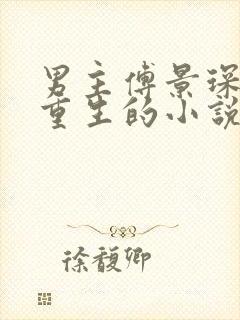 男主傅景琛
重生的小說
徐馥卿